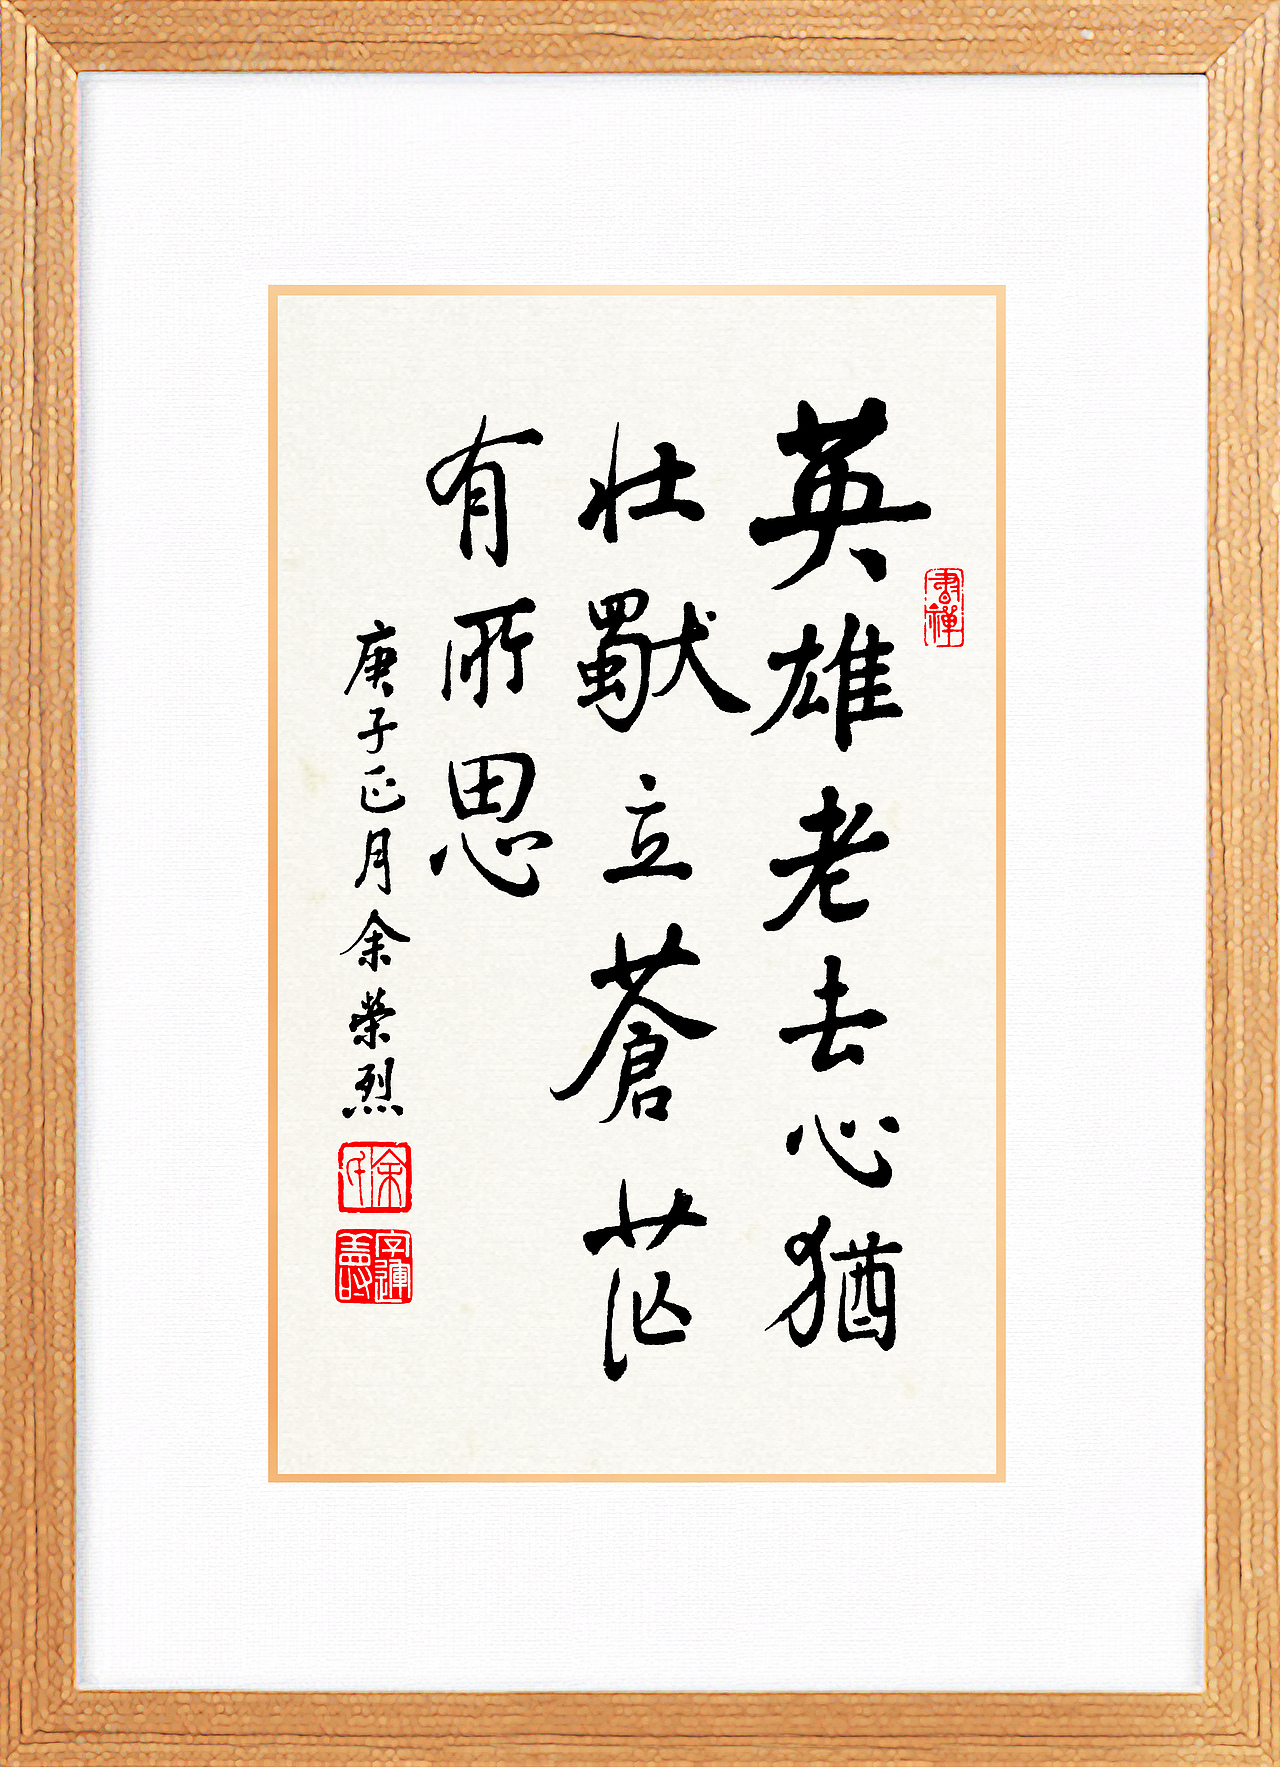 書禪
英雄老去心猶
壯獨立蒼茫
有所思
庚子正月余榮烈